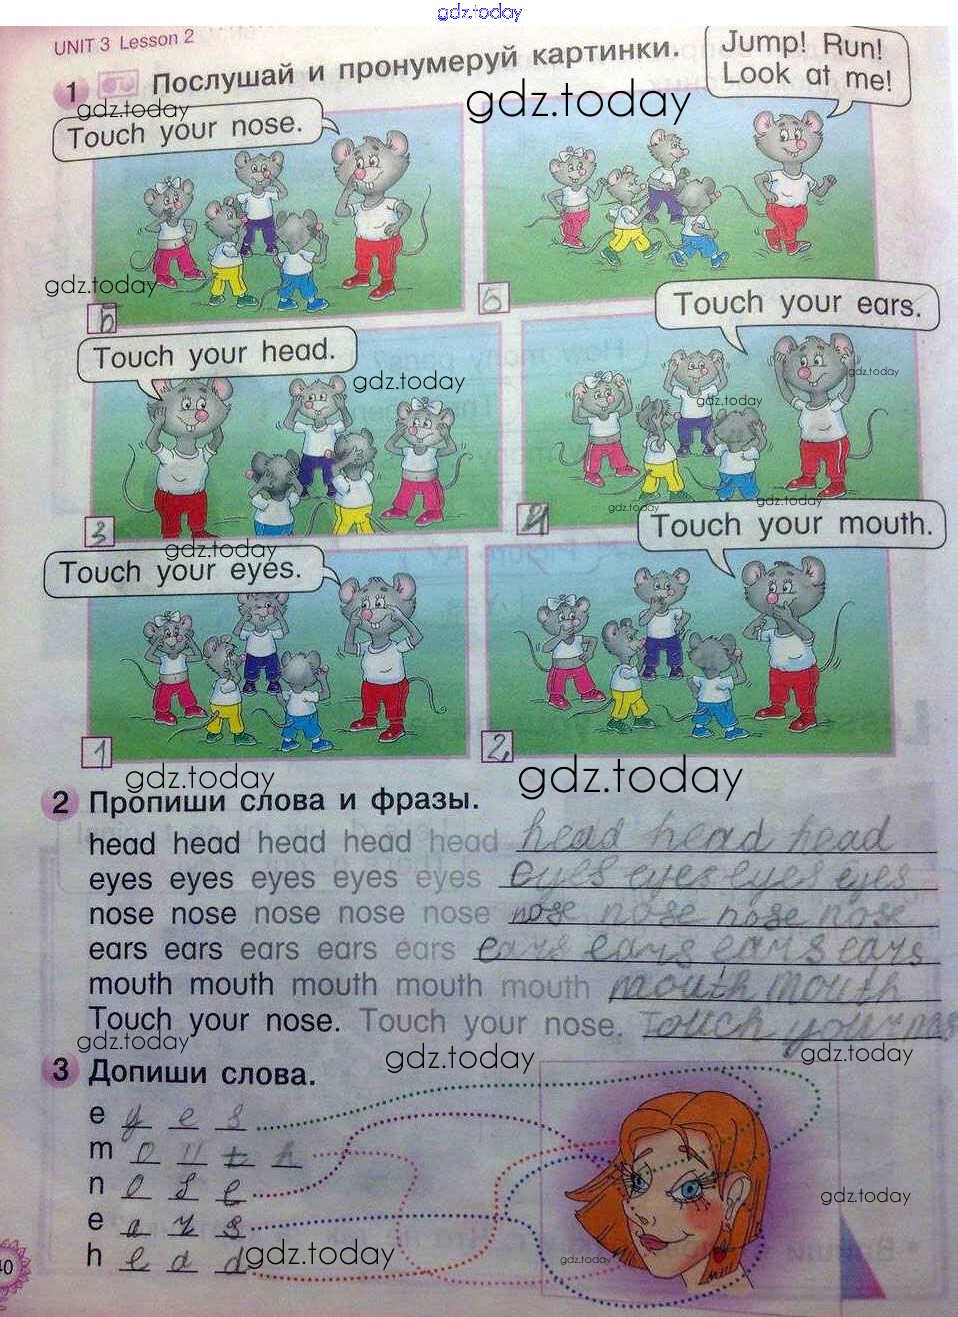 gdz.today
UNIT 3 Lesson 2
1 Послушай и пронумеруй картинки.
Jump! Run!
Look at me!
gdz.today
gdz.today
Touch your nose.
gdz.today
6
5
Touch your ears.
Touch your head.
gdz.today
gdz.today
gdz.today
3
4
gdz.today
gdz.today
Touch your mouth.
gdz.today
Touch your eyes.
1
2
gdz.today
gdz.today
2 Пропиши слова и фразы.
head head head head head head head head
eyes eyes eyes eyes eyes eyes eyes eyes eyes
nose nose nose nose nose nose nose nose nose
ears ears ears ears ears ears ears ears ears
mouth mouth mouth mouth mouth mouth mouth
Touch your nose. Touch your nose. Touch your nos
gdz.today
gdz.today
gdz.today
3 Допиши слова.
e y e s
m o u t h
n o s e
gdz.today
e a r s
h e a d
gdz.today
gdz.today
40